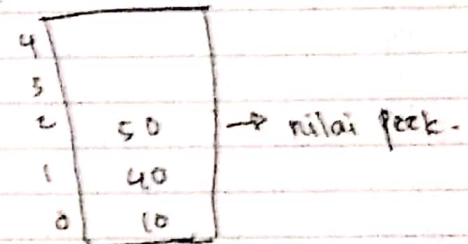 4
3
2 50 → nilai peek.
1 40
0 10